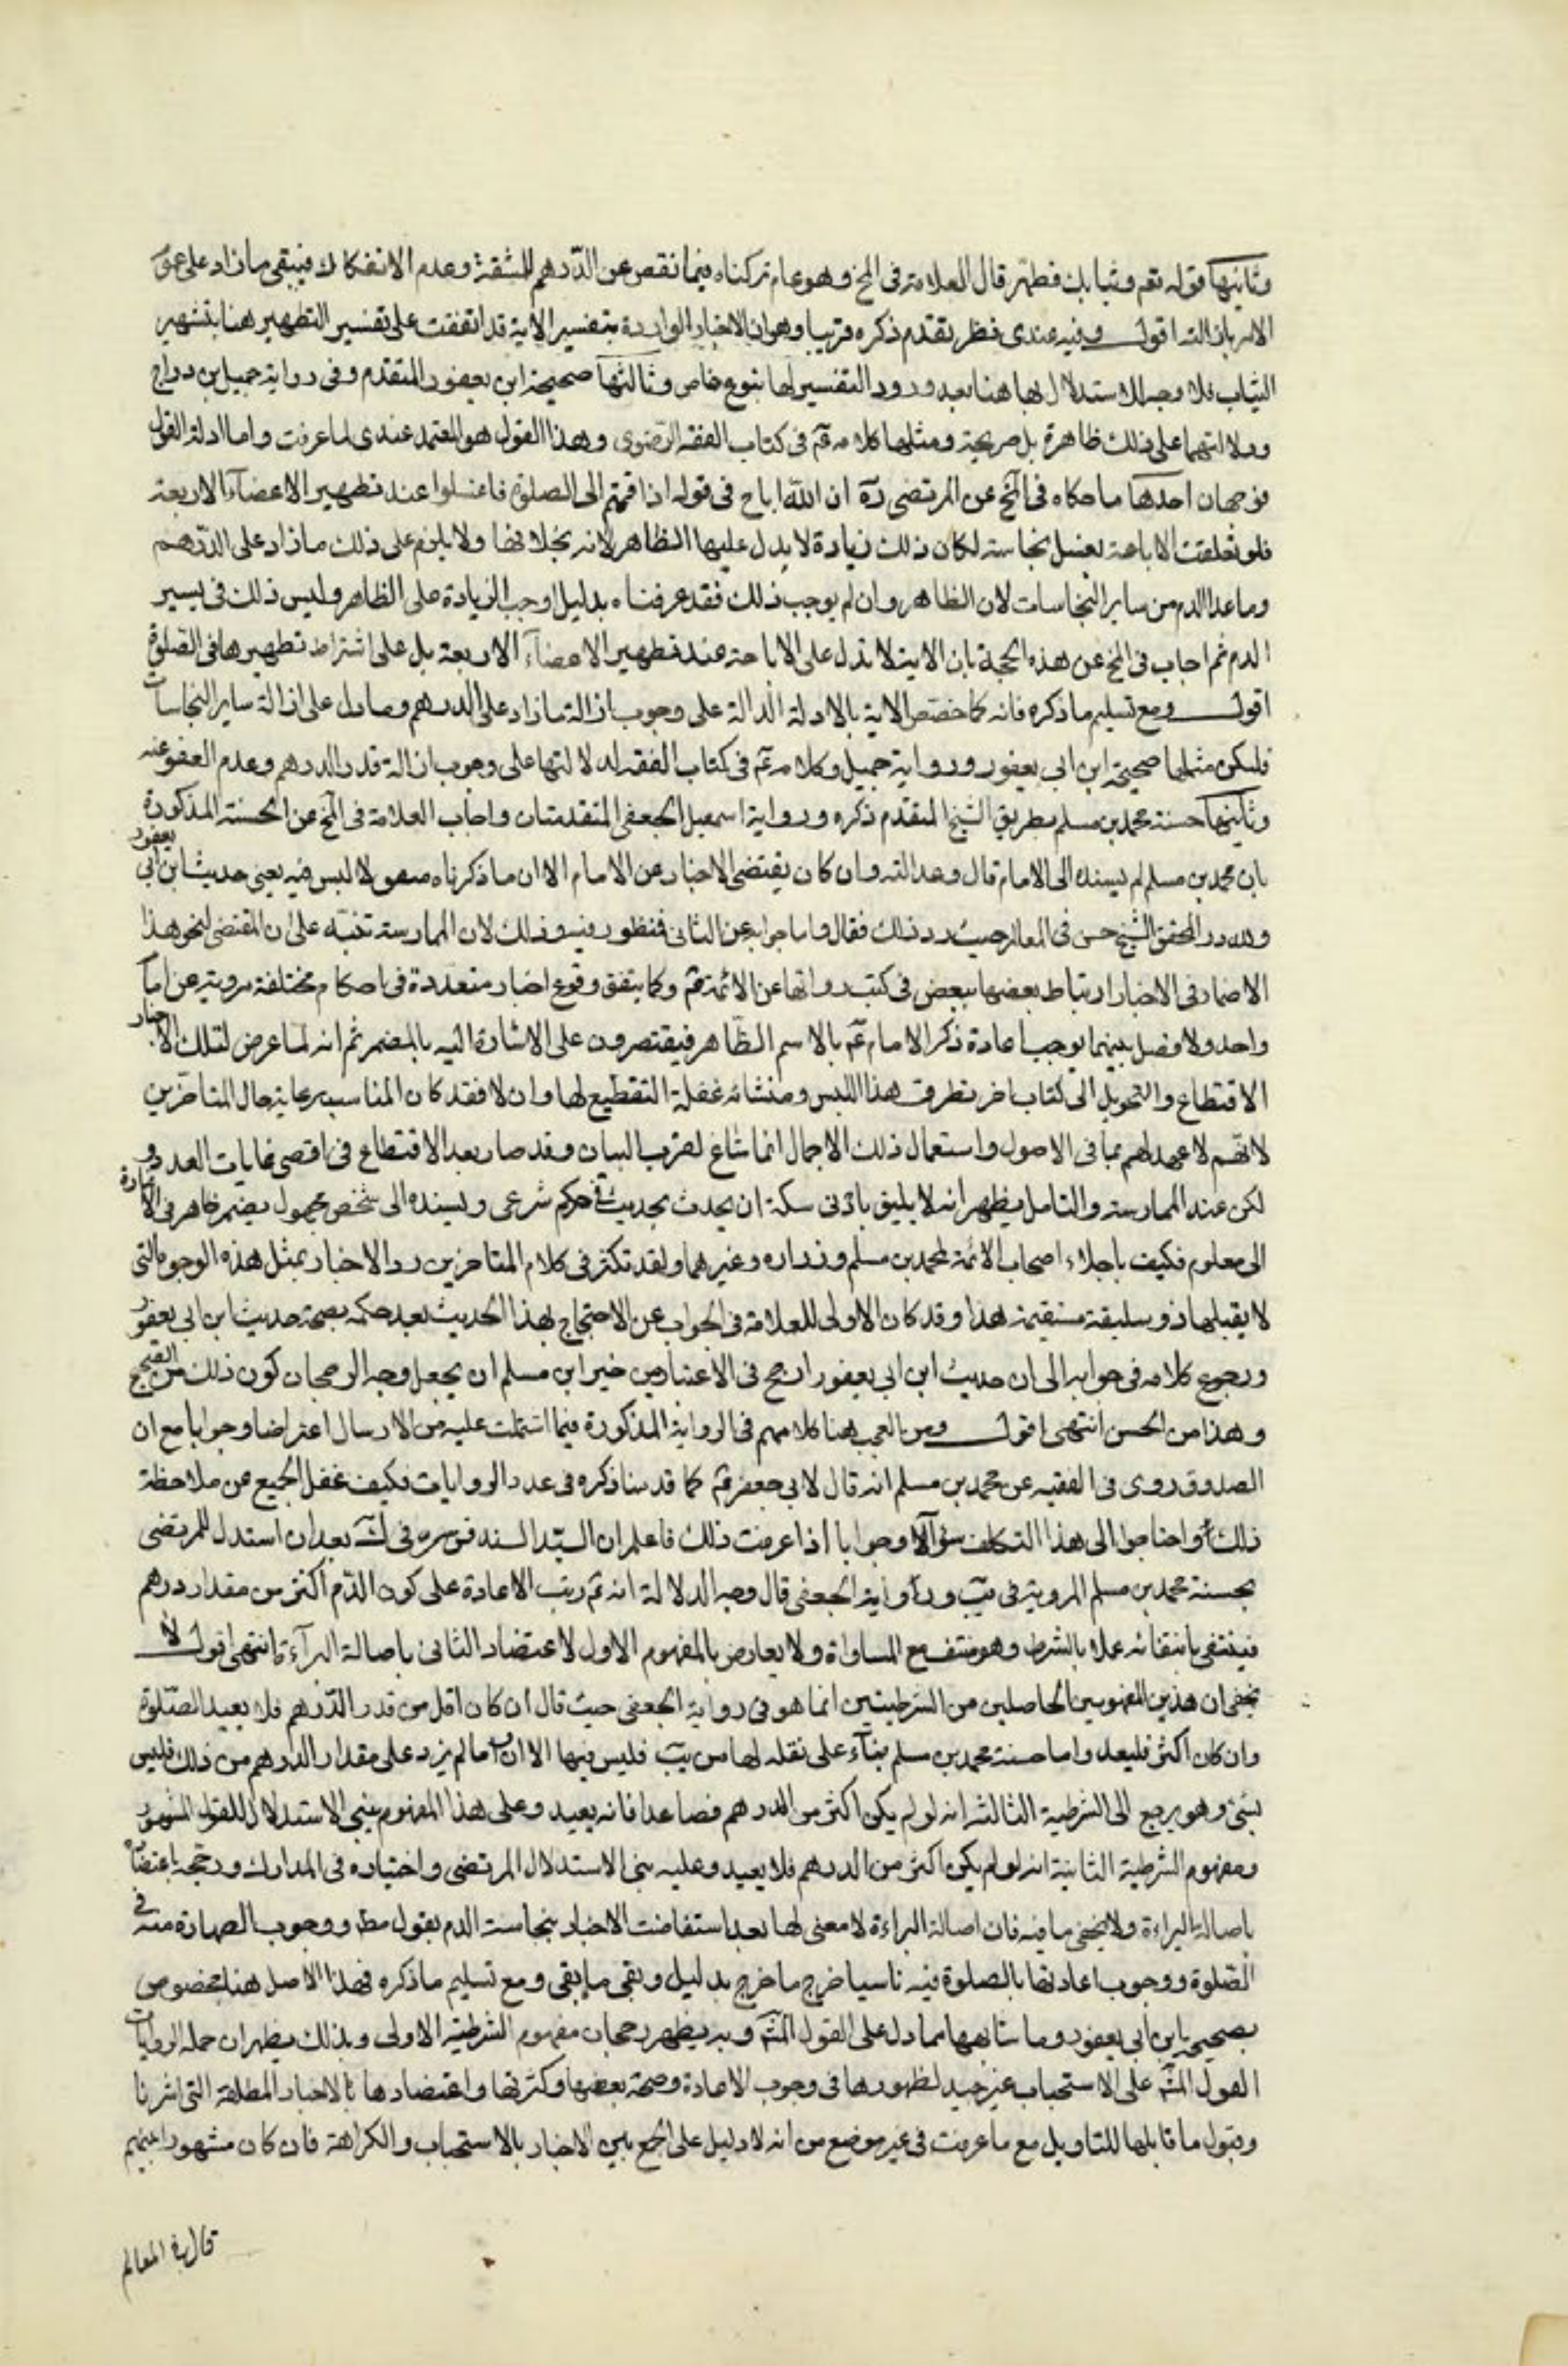 وثانيها قوله تعم وثيابك فطهر قال العلامة في المخ وهو عام تركناه فيما نقص عن الدرهم للمشقة وعدم الانفكاك فيبقى ما زاد على عموم
الامر بازالته اقول وفيه عندى نظر تقدم ذكره قريبا وهو ان الاخبار الواردة بتفسير الآية قد اتفقت على تفسير التطهير هنا بتشهير
الثياب فلا وجه للاستدلال بها هنا بعد ورود التفسير لها بنوع خاص وثالثها صحيحة ابن يعفور المتقدم وفى رواية جميل بن دراج
ودلالتهما على ذلك ظاهرة بل صريحة ومثلها كلامه عم فى كتاب الفقه الرضوى وهذا القول هو المعتمد عندى لما عرفت واما ادلة القول
فوجهان احدها ما حكاه فى المخ عن المرتضى ره ان الله اباح فى قوله اذا قمتم الى الصلوة فاغسلوا عند تطهير الاعضاء الاربعة
فلو تعلقت الاباحة بغسل نجاسة لكان ذلك زيادة لا يدل عليها الظاهر لانه بخلافها ولا يلزم على ذلك ما زاد على الدرهم
وما عدا الدم من ساير النجاسات لان الظاهر وان لم يوجب ذلك فقد عرفناه بدليل اوجب الزيادة على الظاهر وليس ذلك فى يسير
الدم ثم اجاب فى المخ عن هذه الحجة بان الاية لا تدل على الاباحة عند تطهير الاعضاء الاربعة بل على اشتراط تطهيرها فى الصلوة
اقول ومع تسليم ما ذكره فانه كما خصص الاية بالادلة الدالة على وجوب ازالة ما زاد على الدرهم وما دل على ازالة ساير النجاسات
فليكن مثلها صحيحة ابن ابى يعفور ورواية جميل وكلامه عم فى كتاب الفقه لدلالتها على وجوب ازالة قدر الدرهم وعدم العفو عنه
وثانيها حسنة محمد بن مسلم بطريق الشيخ المتقدم ذكره ورواية اسمعيل الجعفى المتقدمتان واجاب العلامة فى المخ عن الحسنة المذكورة
بان محمد بن مسلم لم يسنده الى الامام قال وعدالته وان كان يقتضى الاخبار عن الامام الا ان ما ذكرناه صعو لا لبس فيه يعنى حديث ابن ابى يعفور
ولله در المحقق الشيخ حسن فى المعالم حيث رد ذلك فقال واما جوابه عن الثانى فمنظور فيه وذلك لان الممارسة تنبه على ان المقتضى لنحو هذا
الاضمار فى الاخبار ارتباط بعضها ببعض فى كتب رواتها عن الائمة عم وكما يتفق وقوع اخبار متعددة فى احكام مختلفة مروية عن امام
واحد ولا فصل بينهما يوجب اعادة ذكر الامام عم بالاسم الظاهر فيقتصرون على الاشارة اليه بالمضمر ثم انه لما عرض لتلك الاخبار
الاقتطاع والتحويل الى كتاب اخر تطرق هذا اللبس ومنشائه غفلة التقطيع لها وان لا فقد كان المناسب رعاية حال المتاخرين
لانهم لا عهد لهم بما فى الاصول واستعمال ذلك الاجمال انما شاغ لقرب البيان وقد صار بعد الاقتطاع فى اقصى غايات البعد و
لكن عند الممارسة والتامل يظهر انه لا يليق بادنى سكة ان يحدث بحديث فى حكم شرعى ويسنده الى شخص مجهول بضمير ظاهر فى الاشارة
الى معلوم فكيف باجلاء اصحاب الائمة لمحمد بن مسلم وزراره وغيرهما ولقد تكثر فى كلام المتاخرين رد الاخبار بمثل هذه الوجوه التى
لا يقبلها ذو سليقة مستقيمة هذا وقد كان الاولى للعلامة فى الجواب عن الاحتجاج بهذا الحديث بعد حكمه بصحة حديث ابن ابى يعفور
ورجوع كلامه فى جوابه الى ان حديث ابن ابى يعفور ارجح فى الاعتبار من خبر ابن مسلم ان يجعل وجه الرجحان كون ذلك من الصحيح
وهذا من الحسن انتهى اقول ومن العجب هنا كلامهم فى الرواية المذكورة فيما اشتملت عليه من الارسال اعتراضا وجوابا مع ان
الصدوق روى فى الفقيه عن محمد بن مسلم انه قال لابى جعفر عم كما قدمنا ذكره فى عدد الروايات فكيف غفل الجميع عن ملاحظة
ذلك واحتاجوا الى هذا التكلف سؤالا وجوابا اذا عرفت ذلك فاعلم ان السيد السند قدس سره فى ك بعد ان استدل للمرتضى
بحسنة محمد بن مسلم المروية فى يب ورواية الجعفى قال وجه الدلالة انه عم رتب الاعادة على كون الدم اكثر من مقدار درهم
فينتفى بانتفائه عملا بالشرط وهو منتف مع المساواة ولا يعارض بالمفهوم الاول لاعتضاد الثانى باصالة البراءة انتهى اقول لا
يخفى ان هذين المفهومين الحاصلين من الشرطيتين انما هو فى رواية الجعفى حيث قال ان كان اقل من قدر الدرهم فلا يعيد الصلوة
وان كان اكثر فليعد واما حسنة محمد بن مسلم بناء على نقله لها من يب فليس فيها الا ان ما لم يزد على مقدار الدرهم من ذلك فليس
بشئ وهو يرجع الى الشرطية الثالثه انه لو لم يكن اكثر من الدرهم فصاعدا فانه يعيد وعلى هذا المفهوم بنى الاستدلال للقول المشهور
ومفهوم الشرطية الثانية انه لو لم يكن اكثر من الدرهم فلا يعيد وعليه بنى الاستدلال المرتضى واختياره فى المدارك ورجحه باعتضاده
باصالة البراءة ولا يخفى ما فيه فان اصالة البراءة لا معنى لها بعد استفاضت الاخبار بنجاسة الدم بقول مط ووجوب الطهارة منه فى
الصلوة ووجوب اعادتها بالصلوة فيه ناسيا خرج ما خرج بدليل وبقى ما بقى ومع تسليم ما ذكره فهذا الاصل هنا مخصوص
بصحيحة ابن ابى يعفور وما شابهها مما دل على القول المش وبه يظهر رجحان مفهوم الشرطية الاولى وبذلك يظهر ان حمله الروايات
القول المش على الاستحباب غير جيد لظهورها فى وجوب الاعادة وصحة بعضها وكثرتها واعتضادها بالاخبار المطلقة التى اشرنا
وقبول ما قابلها للتاويل مع ما عرفت فى غير موضع من انه لا دليل على الجمع بين الاخبار بالاستحباب والكراهة فان كان مشهورا بينهم
قال فى المعالم